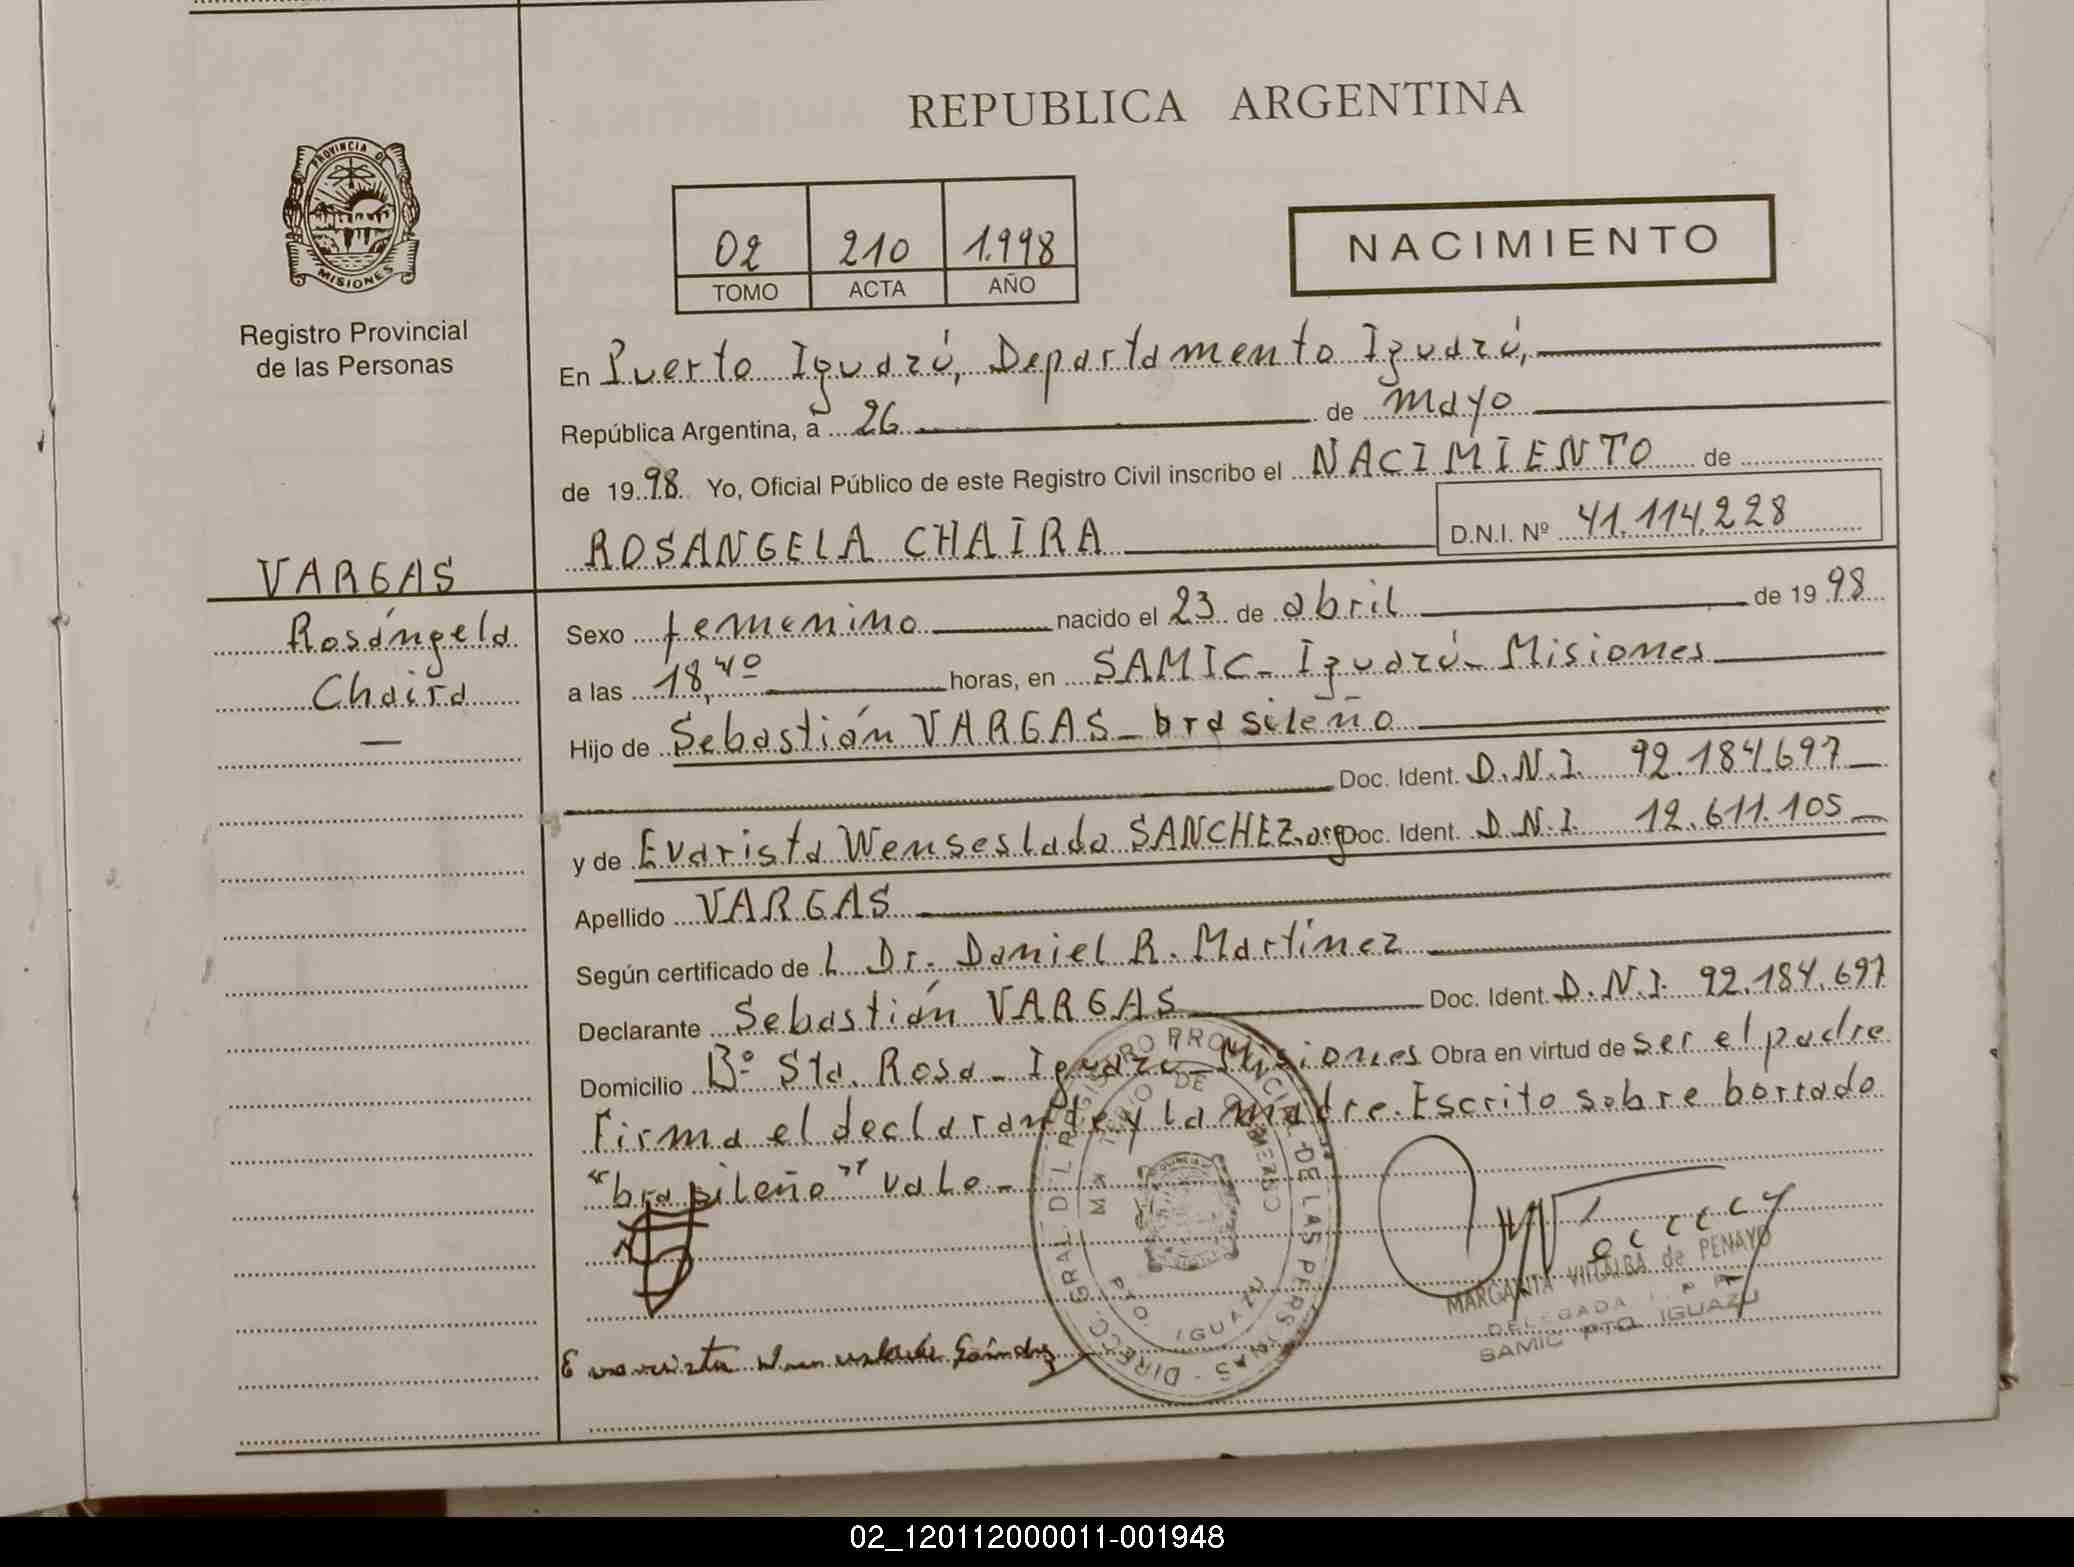 REPUBLICA ARGENTINA
PROVINCIA DE
MISIONES
Registro Provincial
de las Personas
02 210 1.998
TOMO ACTA AÑO
NACIMIENTO
En Puerto Iguazú, Departamento Iguazú,
República Argentina, a 26 de mayo
de 1998 Yo, Oficial Público de este Registro Civil inscribo el NACIMIENTO de
ROSANGELA CHAIRA D.N.I. Nº 41.114.228
VARGAS
Rosángela
Chaira
Sexo femenino nacido el 23 de abril de 1998
a las 18,40 horas, en SAMIC - Iguazú - Misiones
Hijo de Sebastián VARGAS - brasileño
Doc. Ident. D.N.I. 92.184.697
y de Evarista Wenseslada SANCHEZ.arg Doc. Ident. D.N.I. 12.611.105
Apellido VARGAS
Según certificado de L Dr. Daniel R. Martínez
Declarante Sebastián VARGAS Doc. Ident. D.N.I. 92.184.697
Domicilio Bº Sta. Rosa - Iguazú - Misiones Obra en virtud de ser el padre
Firma el declarante y la madre. Escrito sobre borrado
"brasileño" vale -
DIRECC. GRAL. DEL REGISTRO PROVINCIAL DE LAS PERSONAS
IGUAZU
MARGARITA VILLALBA de PENAYO
DELEGADA
SAMIC PTO. IGUAZU
Evarista Wenseslada Sánchez
02_120112000011-001948